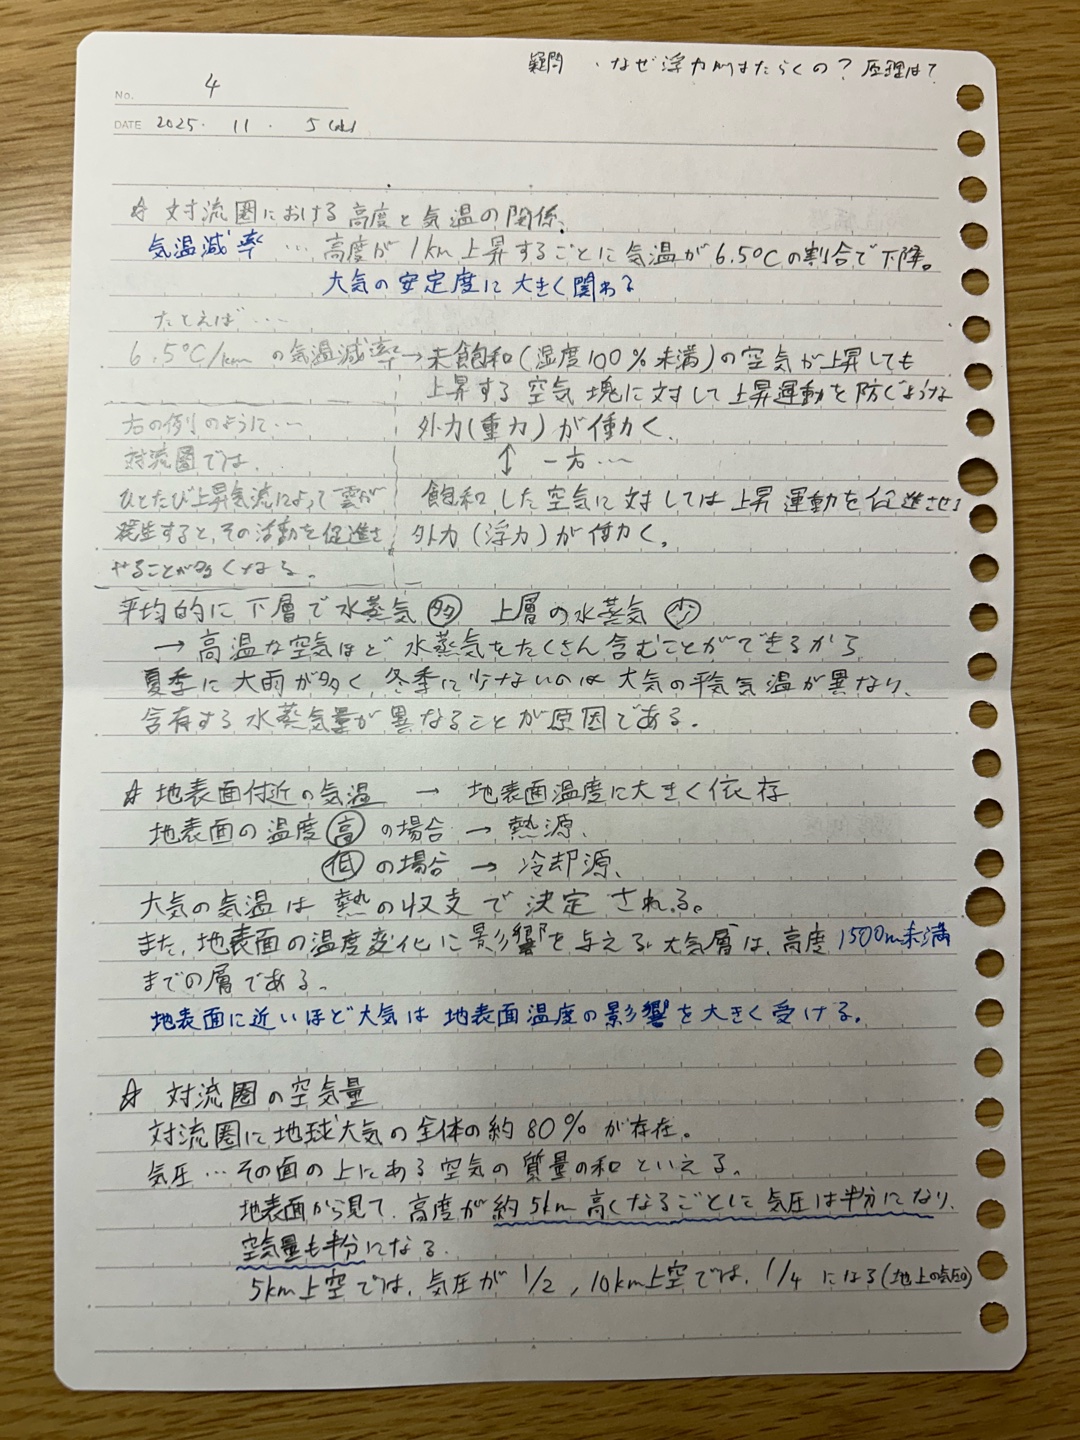 疑問 ・なぜ浮力がはたらくの？原理は？
No. 4
DATE 2025. 11. 5
☆ 対流圏における高度と気温の関係、
気温減率 … 高度が1km上昇するごとに気温が6.5℃の割合で下降。
大気の安定度に大きく関わる
たとえば…
6.5℃/kmの気温減率→未飽和(湿度100%未満)の空気が上昇しても
上昇する空気塊に対して上昇運動を防ぐような
外力(重力)が働く、
↕ 一方…
飽和した空気に対しては上昇運動を促進させる
外力(浮力)が働く。
右の例のように…
対流圏では、
ひとたび上昇気流によって雲が
発生すると、その活動を促進さ
せることが多くなる。
平均的に下層で水蒸気多 上層の水蒸気少
→高温な空気ほど水蒸気をたくさん含むことができるから
夏季に大雨が多く、冬季に少ないのは大気の平気気温が異なり、
含有する水蒸気量が異なることが原因である。
☆ 地表面付近の気温 → 地表面温度に大きく依存
地表面の温度高の場合→熱源、
低の場合→冷却源、
大気の気温は熱の収支で決定される。
また、地表面の温度変化に影響を与える大気層は、高度1500m未満
までの層である。
地表面に近いほど大気は地表面温度の影響を大きく受ける。
☆ 対流圏の空気量
対流圏に地球大気の全体の約80%が存在。
気圧…その面の上にある空気の質量の和といえる。
地表面から見て、高度が約5km高くなるごとに気圧は半分になり、
空気量も半分になる。
5km上空では、気圧が1/2, 10km上空では、1/4になる(地上の気圧の)